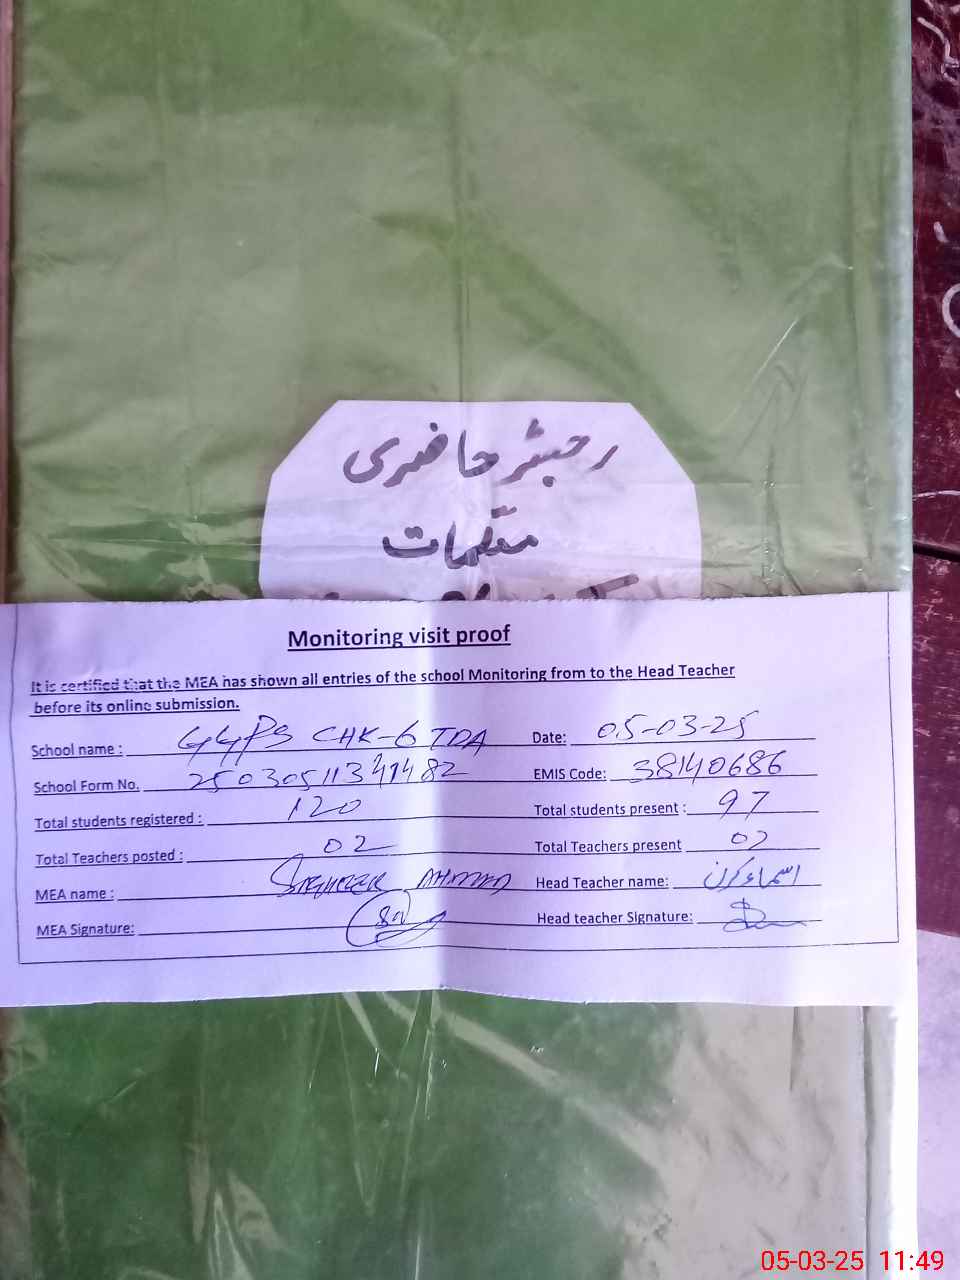 رجسٹر حاضری
معلمات
Monitoring visit proof
It is certified that the MEA has shown all entries of the school Monitoring from to the Head Teacher
before its online submission.
School name : GGPS CHK-6 TDA Date: 05-03-25
School Form No. 25030511341482 EMIS Code: 38140686
Total students registered : 120 Total students present : 97
Total Teachers posted : 02 Total Teachers present 02
MEA name : AHMAD Head Teacher name: اسماء کرن
MEA Signature: Head teacher Signature:
05-03-25 11:49